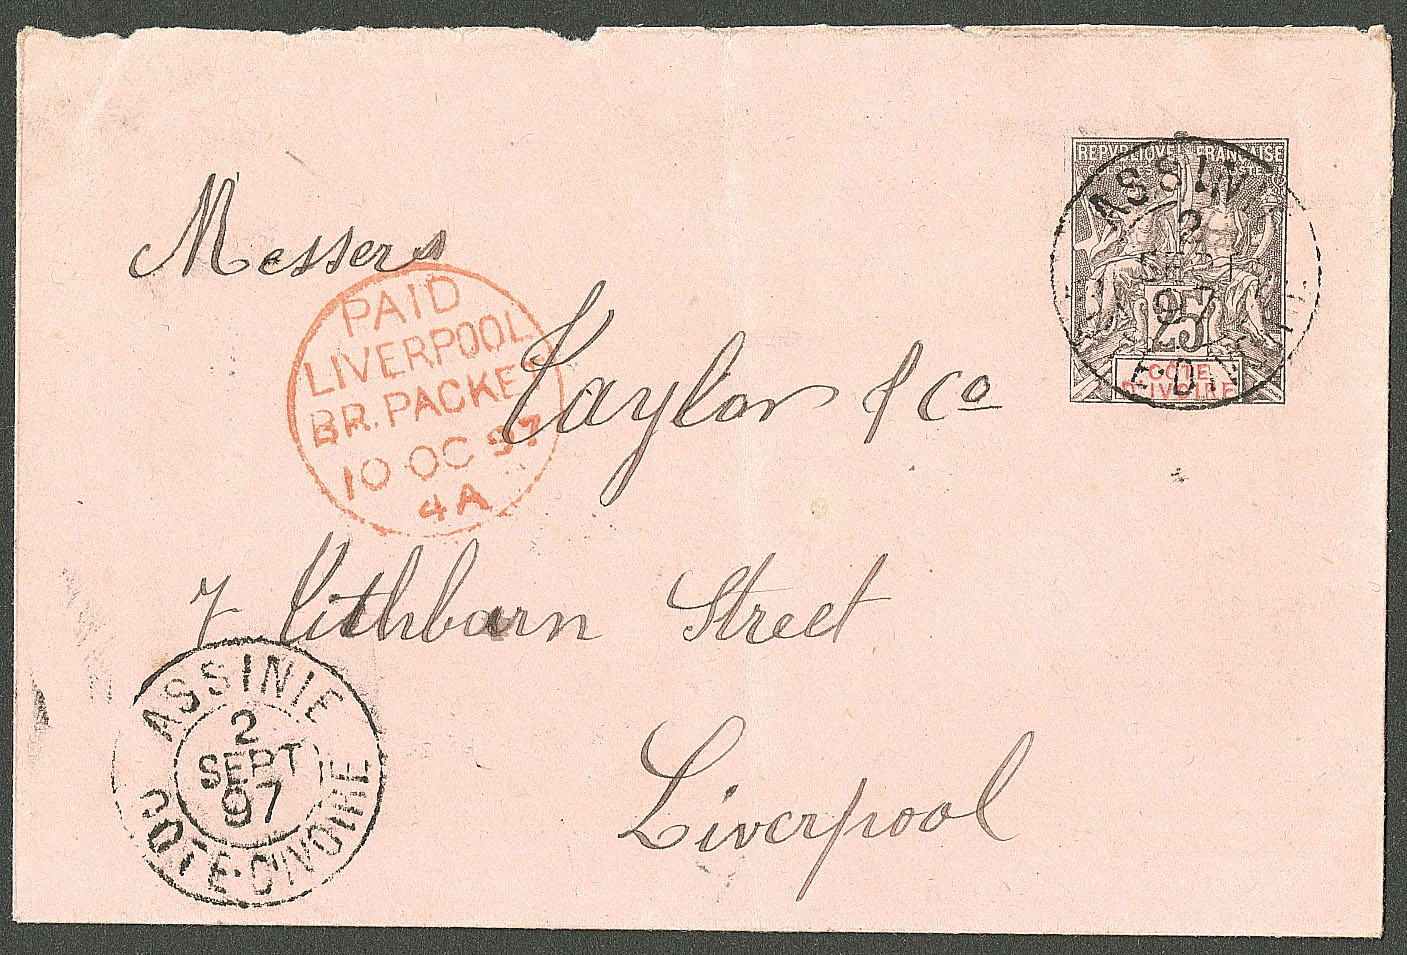 REPVBLIQVE FRANÇAISE
ASSINIE
2
SEPT
97
25
COTE
D'IVOIRE
Messers
PAID
LIVERPOOL
BR. PACKET
10 OC 97
4A
Taylor & Co
7 Tithbarn Street
Liverpool
ASSINIE
2
SEPT
97
COTE·D'IVOIRE